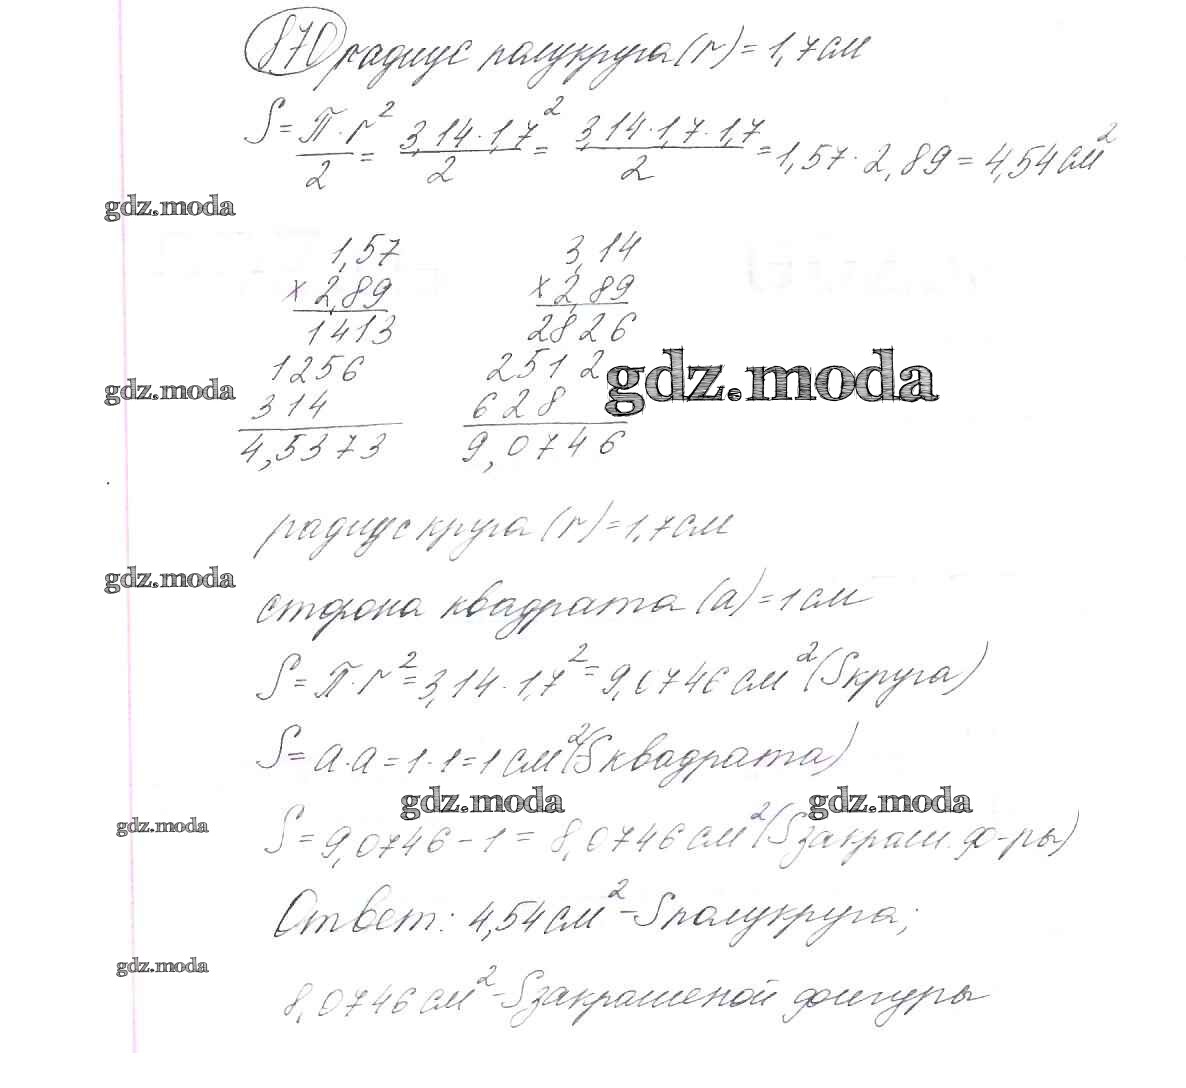 870 радиус полукруга (r) = 1,7 см
S = П · r² / 2 = 3,14 · 1,7² / 2 = 3,14 · 1,7 · 1,7 / 2 = 1,57 · 2,89 = 4,54 см²
gdz.moda
1,57 3,14
× 2,89 × 2,89
1413 2826
1256 2512
gdz.moda
gdz.moda
314 628
4,5373 9,0746
радиус круга (r) = 1,7 см
gdz.moda
сторона квадрата (a) = 1 см
S = П · r² = 3,14 · 1,7² = 9,0746 см² (S круга)
S = a · a = 1 · 1 = 1 см² (S квадрата)
gdz.moda gdz.moda
gdz.moda
S = 9,0746 - 1 = 8,0746 см² (S закраш. ф-ры)
Ответ: 4,54 см² - S полукруга;
gdz.moda
8,0746 см² - S закрашеной фигуры